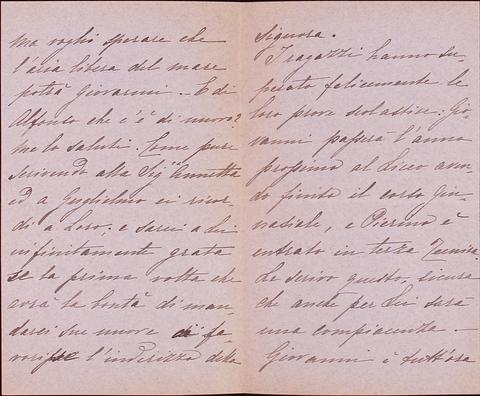 ma voglio sperare che
l'aria libera del mare
potrà giovarmi. - E di
Alfonso che c'è di nuovo?
me lo saluti. Come pure
scrivendo alla Sig.ra Annetta
ed a Guglielmo ci ricor-
di a Loro; e sarei a Lei
infinitamente grata
se la prima volta che
avrà la bontà di man-
darci sue nuove
l'indirizzo della
Signora.
I ragazzi hanno su-
perato felicemente le
loro prove scolastiche: Gio-
vanni passerà l'anno
prossimo al Liceo aven-
do finito il corso Gin-
nasiale, e Pierino è
entrato in terza Tecnica.
Le scrivo questo, sicura
che anche per Lei sarà
una compiacenza. -
Giovanni è tutt'ora